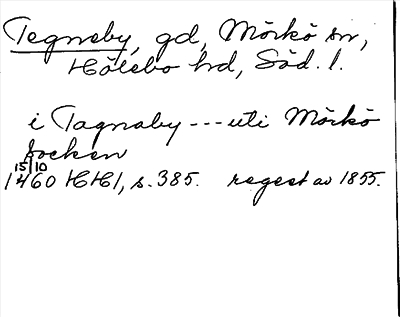 Tegneby, gd, Mörkö sn,
Hölebo hd, Söd. l.
i Tagnaby --- uti Mörkö
Socken
15/10
1460 HH1, s. 385. regest av 1855.